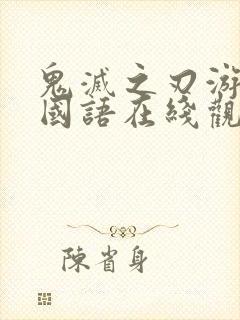 鬼滅之刃游
國語在綫觀
陳省身